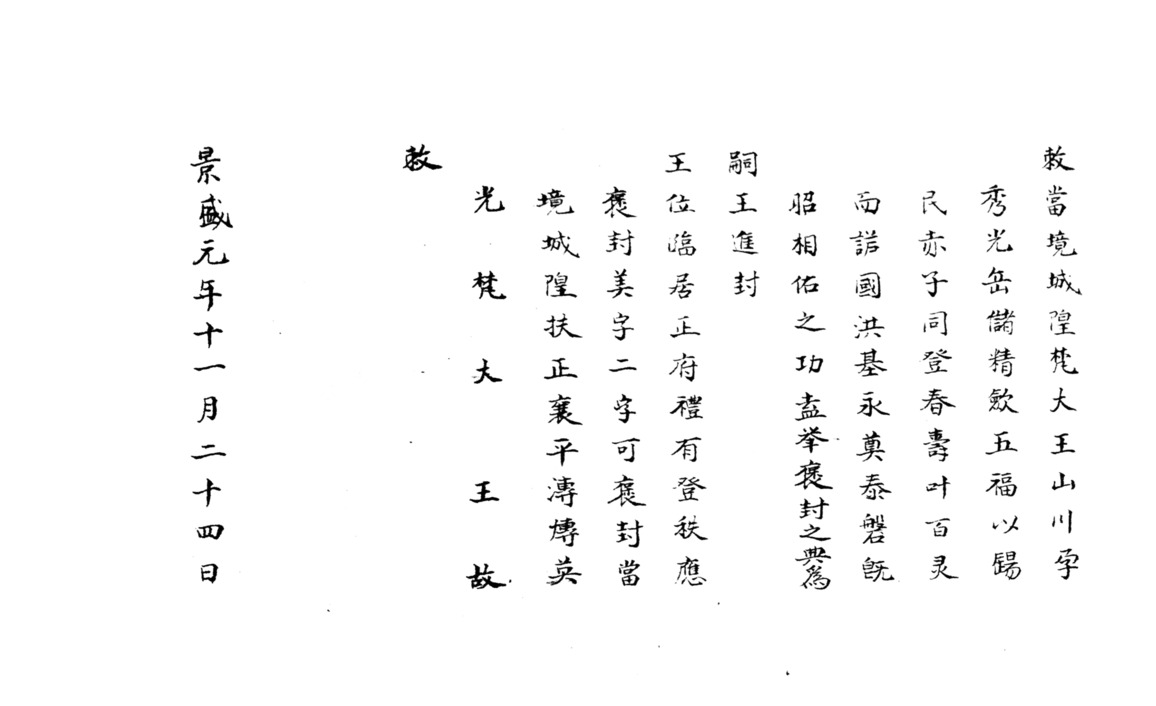 敕當境城隍梵大王山川孕
秀光岳儲精歛五福以錫
民赤子同登春壽叶百灵
而諾國洪基永奠泰磐既
昭相佑之功盍举褒封之典為
嗣王進封
王位臨居正府禮有登秩應
褒封美字二字可褒封當
境城隍扶正襄平溥愽英
光梵大王故
敕
景盛元年十一月二十四日